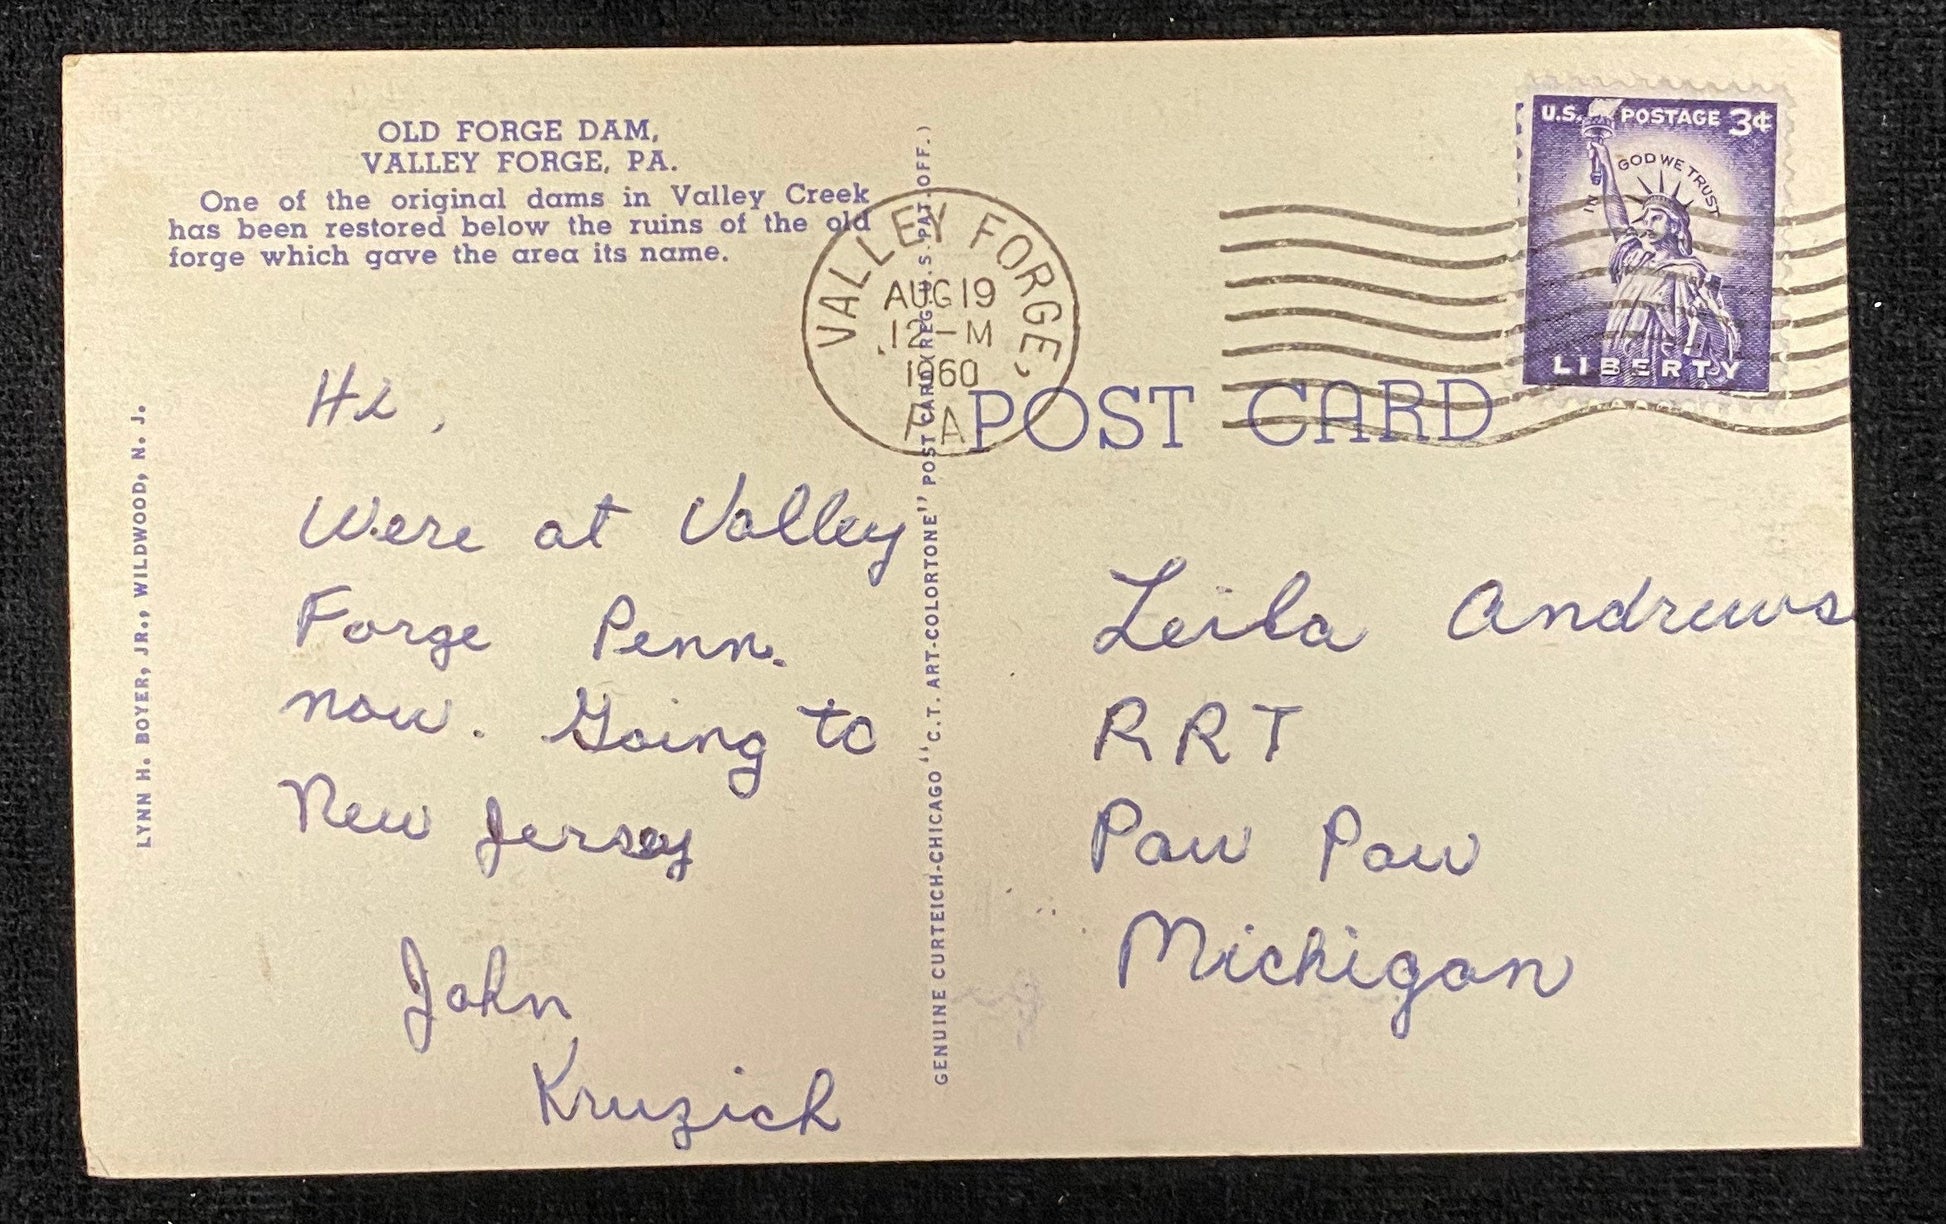 OLD FORGE DAM,
VALLEY FORGE, PA.
One of the original dams in Valley Creek
has been restored below the ruins of the old
forge which gave the area its name.
LYNN H. BOYER, JR., WILDWOOD, N. J.
Hi,
Were at Valley
Forge Penn.
now. Going to
New Jersey
John
Kruzich
GENUINE CURTEICH-CHICAGO "C.T. ART-COLORTONE" POST CARD (REG. U.S. PAT. OFF.)
VALLEY FORGE,
AUG 19
12 - M
1960
PA
POST CARD
U.S. POSTAGE 3¢
IN GOD WE TRUST
LIBERTY
Leila Andrews
RRT
Paw Paw
Michigan